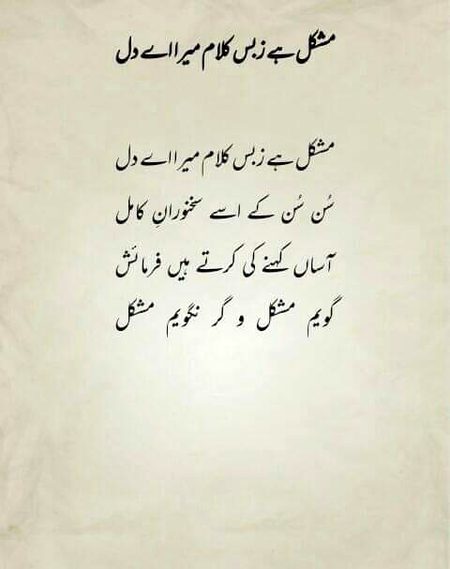 مشکل ہے زبس کلام میرا اے دل
مشکل ہے زبس کلام میرا اے دل
سُن سُن کے اسے سخنورانِ کامل
آساں کہنے کی کرتے ہیں فرمائش
گویم مشکل و گر نگویم مشکل